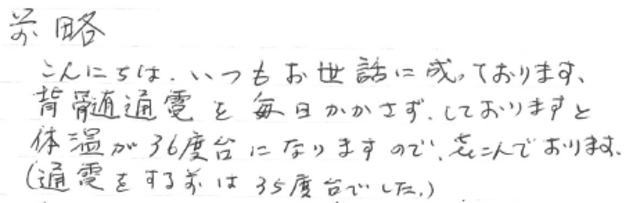 前略
こんにちは、いつもお世話に成っております、
背髄通電を毎日かかさず、しておりますと
体温が36度台になりますので、喜こんでおります。
(通電をする前は35度台でした。)